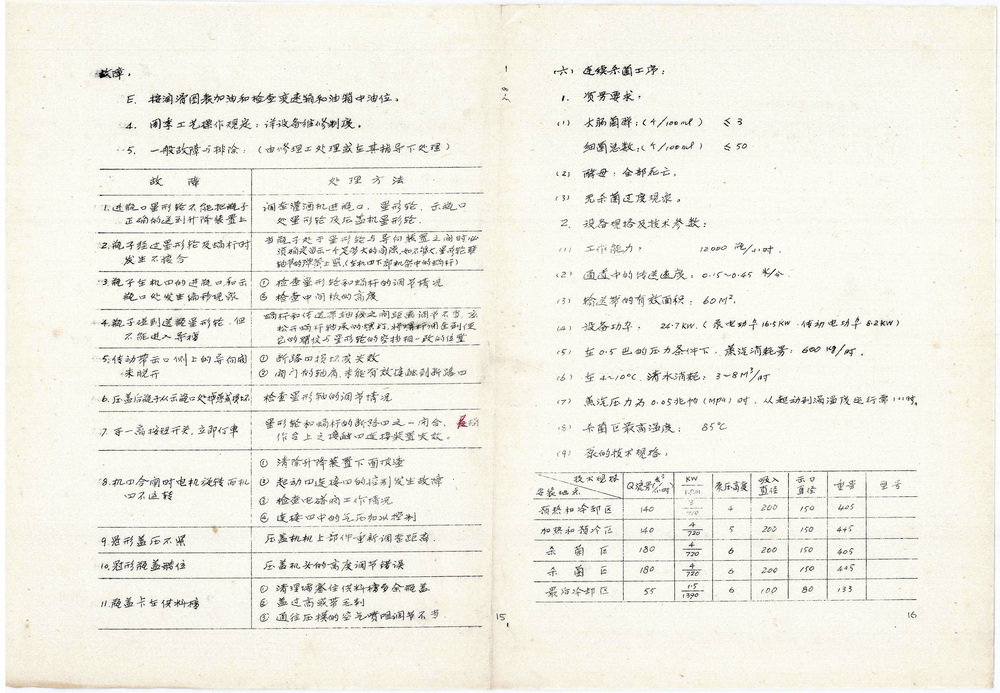 故障.
E. 按润滑图表加油和检查变速箱和油箱中油位.
4. 周季工艺操作规定: 详设备维修制度.
5. 一般故障与排除: (由修理工处理或在其指导下处理)
故 障 处 理 方 法
1.进瓶口星形轮不能把瓶子 调查灌酒机进瓶口, 星形轮, 示瓶口
正确的送到升降装置上 处星形轮及压盖机星形轮.
2.瓶子经过星形轮及蜗杆时 当瓶子处于星形轮与导向装置之间时必
发生不撞合
3.瓶子在机四的进瓶口和示 ① 检查星形轮和蜗杆的调节情况
瓶口处发生偏移现象 ② 检查中间板的高度
4.瓶子碰到送瓶星形轮, 但
不能进入导槽 它的螺纹与星形轮的空档相一致的位置
5.传动带示口侧上的导向闸 ① 断路四损坏或失效
未脱开 ② 闸门的轴肩未能有效接触到断路四
检查星形轴的调节情况
7. 手一离按钮开关,立即停车 星形轮和蜗杆的断路四之一闭合.
作台上之接触四连接装置失效.
8.机四合闸时电机旋转而机 ① 清除升降装置下面玻渣
四不运转 ② 起动四连接四的控制发生故障
③ 检查电路的工作情况
④ 连接四中的气压加以控制
9.冠形盖压不紧 压盖机机上部件重新调查距离.
10.冠形瓶盖错位 压盖机头的高度调节错误
11.瓶盖卡在供料槽 ① 清理堵塞住供料槽多余瓶盖
② 盖过高或带毛刺
③ 通往压模的空气喷咀调节不当
15
(六) 连续杀菌工序:
1. 质另要求.
(1) 大肠菌群:(个/100ml) ≤ 3
细菌总数:(个/100ml) ≤ 50
(2) 酵母: 全部死亡.
(3) 无杀菌过度现象.
2. 设备规格及技术参数:
(1) 工作能力: 12000 瓶/小时.
(2) 通道中的传送速度: 0.15~0.45 米/分
(3) 输送带的有效面积: 60M².
(4) 设备功率: 24.7KW.(泵电功率16.5KW 传动电功率8.2KW)
(5) 在0.5巴的压力条件下, 蒸汽消耗另: 600 kg/时.
(6) 在4~10℃ 清水消耗: 3~8M³/时
(7) 蒸汽压力为0.05兆帕(MPa)时, 从起动到满温度运行需
(8) 杀菌区最高温度: 85℃
(9) 泵的技术规格:
技术规格 Q流另(M³/小时) KW 泵压高度 吸入直径 示口直径 重另 型号
安装地点
预热和冷却区 140 4 200 150 405
加热和预冷区 140 4/720 5 200 150 445
杀 菌 区 180 4/720 6 200 150 405
杀 菌 区 180 4/720 6 200 150 445
最后冷却区 55 1.5/1390 6 100 80 133
16